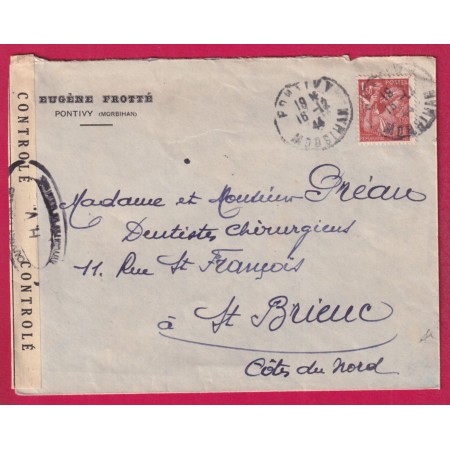 EUGÈNE FROTTÉ
PONTIVY (MORBIHAN)
PONTIVY
19 H
16 -12
44
MORBIHAN
MORBIHAN
POSTES
CONTROLÉ
CONTROLÉ
Madame et Monsieur Gréau
Dentistes chirurgiens
11, Rue St François
à St Brieuc
Côtes du Nord